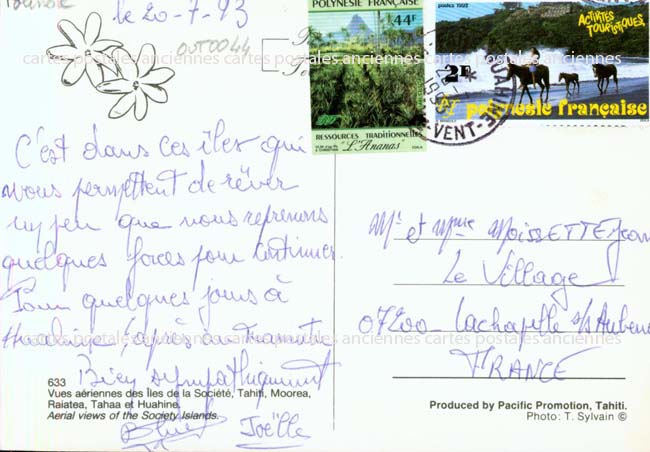 le 20-7-93
OUT0044
POLYNÉSIE FRANÇAISE
44F
RESSOURCES TRADITIONNELLES
"L'Ananas"
postes 1992
ACTIVITÉS
TOURISTIQUES
2F
polynésie française
cartes postales anciennes cartes postales anciennes cartes postales anciennes
C'est dans ces îles qui
nous permettent de rêver
un peu que nous reprenons
quelques forces pour continuer.
Pour quelques jours à
Huahine, après
Bien sympathiquement
Joëlle
Mr et Mme MOISSETTE Jean
Le Village
07200 - Lachapelle s/s Aubenas
FRANCE
cartes postales anciennes cartes postales anciennes cartes postales anciennes
633
Vues aériennes des Îles de la Société, Tahiti, Moorea,
Raiatea, Tahaa et Huahine.
Aerial views of the Society Islands.
Produced by Pacific Promotion, Tahiti.
Photo: T. Sylvain ©